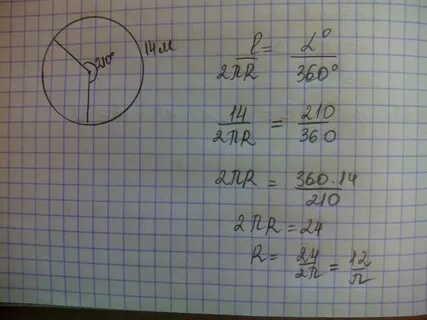 210° 14м
l/2πR = α°/360°
14/2πR = 210/360
2πR = 360·14/210
2πR = 24
R = 24/2π = 12/π